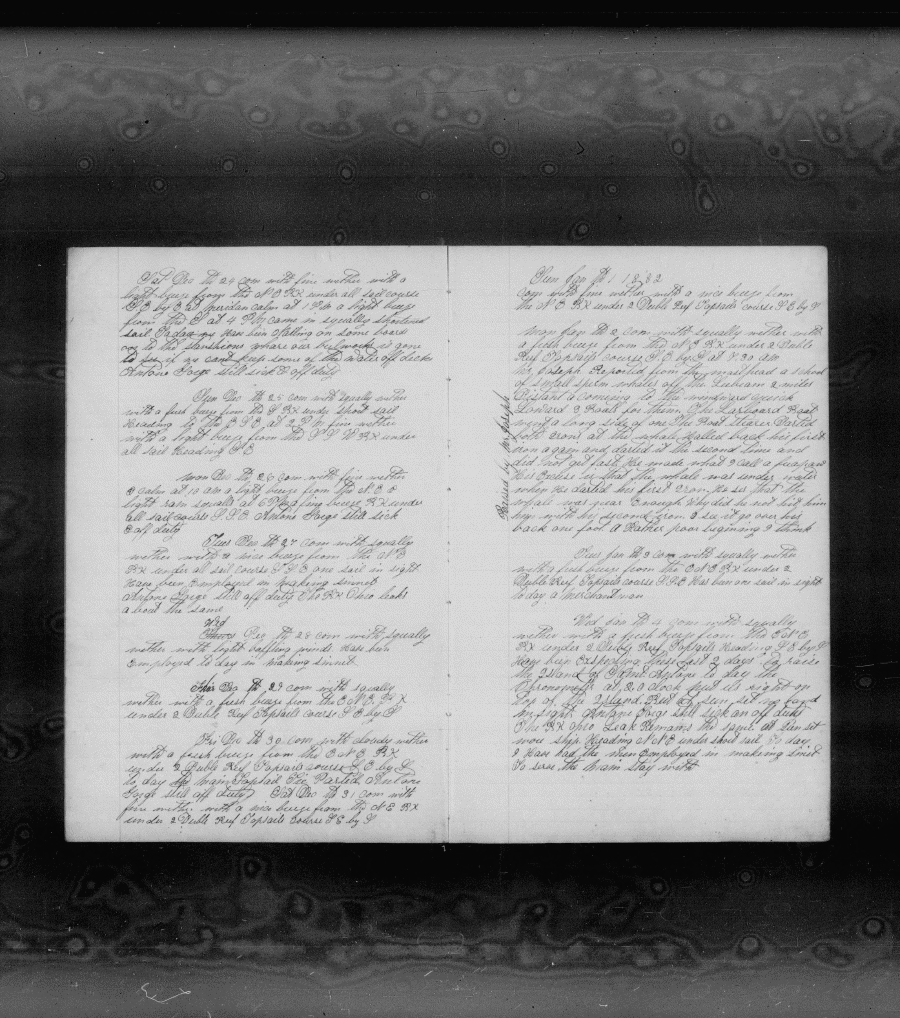 Sat Dec th 24 com with fine wether with a
light breze from the N E RX under all sail course
S E by E at meridan calm at 1 P M a light breze
from the S at 4 P M came in squally shortened
sail today our men stalling on some board
on to the stanshions whare our bulworks is gone
to see if we cant keep some of the water off decks
Antone Jorge still sick & off duty
Sun Dec th 25 com with squally wether
with a fresh breze from the S RX under short sail
Heading to the E S E at 2 P M fine wether
with a light breze from the S S W RX under
all sail Heading S E
mon Dec th 26 com with fine wether
& calm at 10 am a light breze from the N E &
light rain squals at 6 P M a fing breze RX under
all sail course S S E Antone Jorge still sick
& off duty
Tues Dec th 27 com with squally
wether with a nice breze from the N E
RX under all sail course S S E one sail in sight
Have been Employed in makeing sinnet
Antone Jorge still off duty The RX Ohio leaks
about the same
Wed
Dec th 28 com with squally
wether with light baffling winds Has been
Employed to day in making sinnet
Dec th 29 com with squally
wether with a fresh breze from the E N E RX
under 2 Duble Reef Topsails course S E by S
Fri Dec th 30 com with cloudy wether
with a fresh breze from the E N E RX
under 2 Duble Reef Topsails course S E by S
to day the main Topsail Tie Parted Antone
Jorge still off duty Sat Dec th 31 com with
fine wether with a nice breze from the N E RX
under 2 Duble Reef Topsails course S E by S
Sun Jan th 1 1882
Com with fine wether with a nice breze from
the N E RX under 2 Duble Reef Topsails course S E by S
Mon Jan th 2 com with squally wether with
a fresh breze from the N E RX under 2 Duble
Reef Topsails course S E by S at 8.30 am
Mr Joseph Reported from the masthead a school
of small sperm whales off the Leebeam 2 miles
distant a comeing to the windward quick
Lowerd 3 Boats for them The Larboard Boat
went a long side of one The Boat Stearer Darted
both irons at the whale Halled back his first
iron again and darted it the second time and
did not get fast He made what I call a
His Excuse is that the whale was under water
when he darted his first iron He sez that the
whale was near Enough Why did he not hit him
then with second iron I see it go over his
back one foot A Rather poor begining I think
Raised by Mr Joseph
Tues Jan th 3 com with squally wether
with a fresh breze from the E N E RX under 2
Duble Reef Topsails course S S E Has ben one sail in sight
to day a merchantman
Wed Jan th 4 com with squally
wether with a fresh breze from the E N E
RX under 2 Duble Reef Topsails Heading S E by S
Have been Expecting these last 2 days to raise
the Island of to day the
Cronometer at 2 O clock put us right on
top of the Island But at sun set no land
in sight Antone Jorge still sick an off duty
The RX Ohio Leak Remains the same at Sun set
wore ship Heading N N E under short sail To day
I Have had the men Employed in making sinit
To serve the main stay with